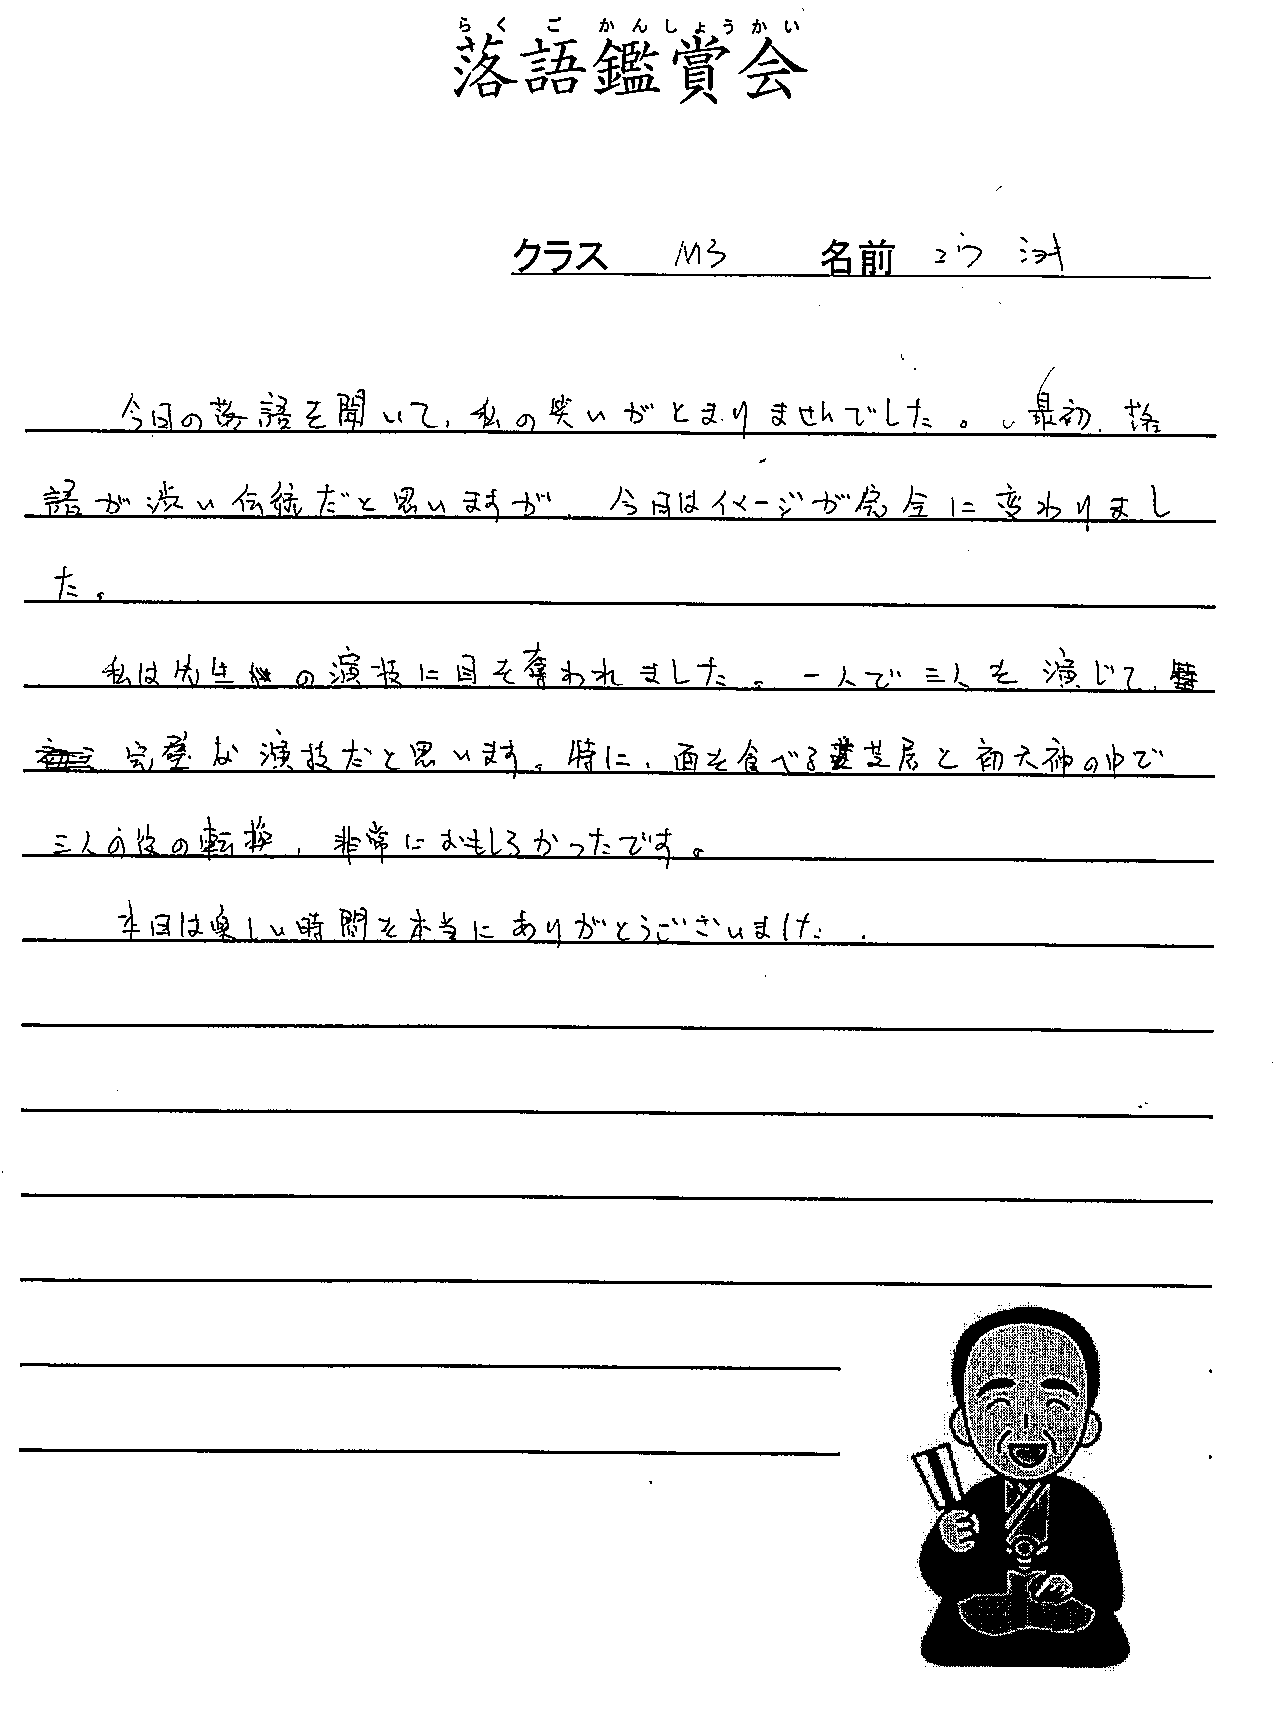 らくごかんしょうかい
落語鑑賞会
クラス M3 名前 コウ
今日の落語を聞いて、私の笑いがとまりませんでした。最初、落
語が渋い伝統だと思いますが、今日はイメージが完全に変わりまし
た。
私は先生の演技に目を奪われました。一人で三人を演じて、
完璧な演技だと思います。特に、面を食べる芝居と初天神の中で
三人の役の転換、非常におもしろかったです。
本日は楽しい時間を本当にありがとうございました.